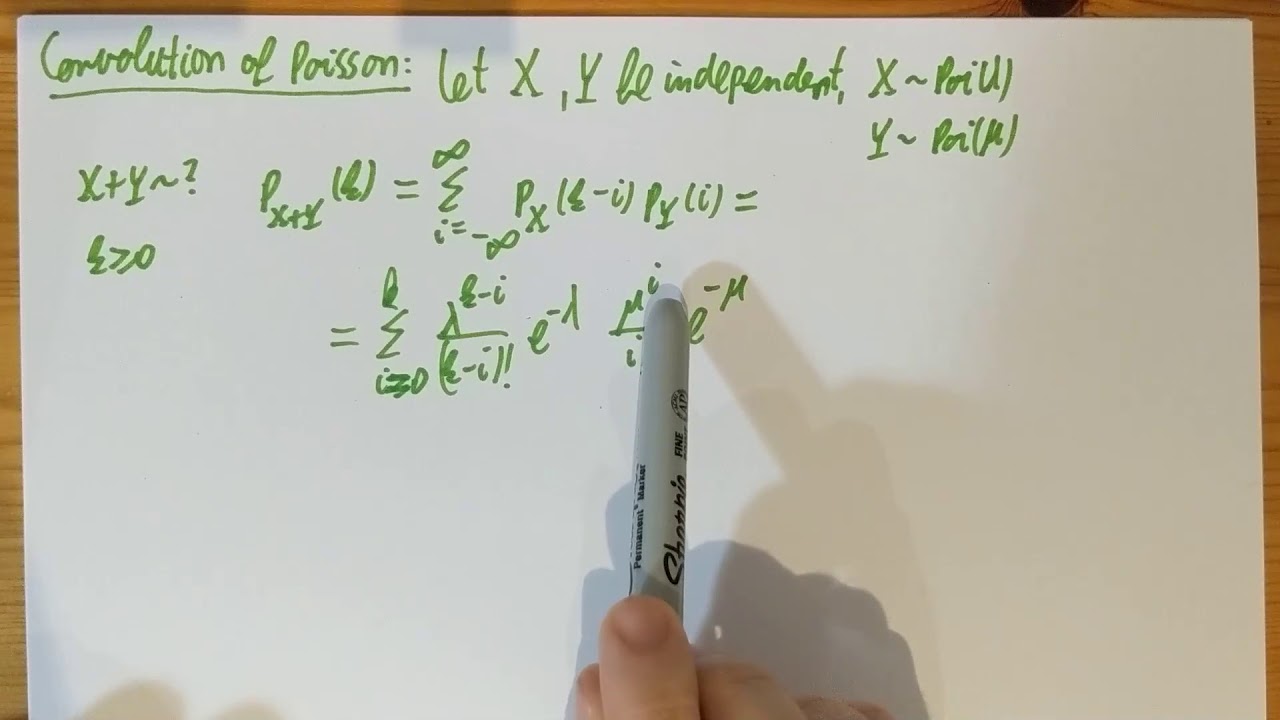 Convolution of Poisson: Let X, Y be independent, X ~ Poi(λ)
Y ~ Poi(μ)
X+Y ~ ? P_{X+Y}(k) = ∑_{i=-∞}^{∞} P_X(k-i) P_Y(i) =
k ≥ 0
= ∑_{i=0}^{k} λ^{k-i}/(k-i)! e^{-λ} μ^i/i e^{-μ}
FINE
AP
Sharpie
Permanent Marker